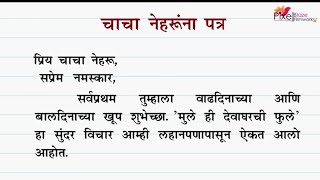 चाचा नेहरूंना पत्र
प्रिय चाचा नेहरू,
सप्रेम नमस्कार,
सर्वप्रथम तुम्हाला वाढदिनाच्या आणि
बालदिनाच्या खूप शुभेच्छा. 'मुले ही देवाघरची फुले'
हा सुंदर विचार आम्ही लहानपणापासून ऐकत आलो
आहोत.